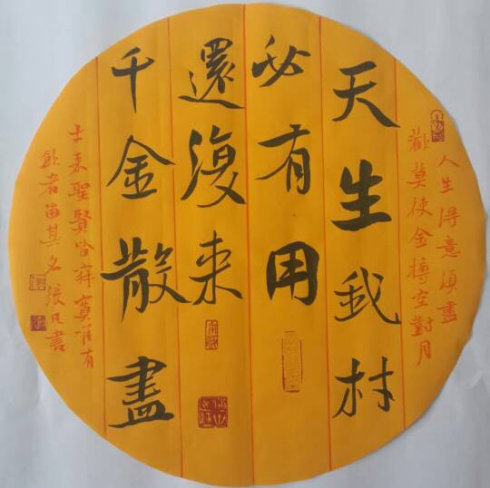 人生得意須盡
歡莫使金樽空對月
天生我材
必有用
還復来
千金散盡
来聖賢皆寂寞唯有
飲者留其名 書